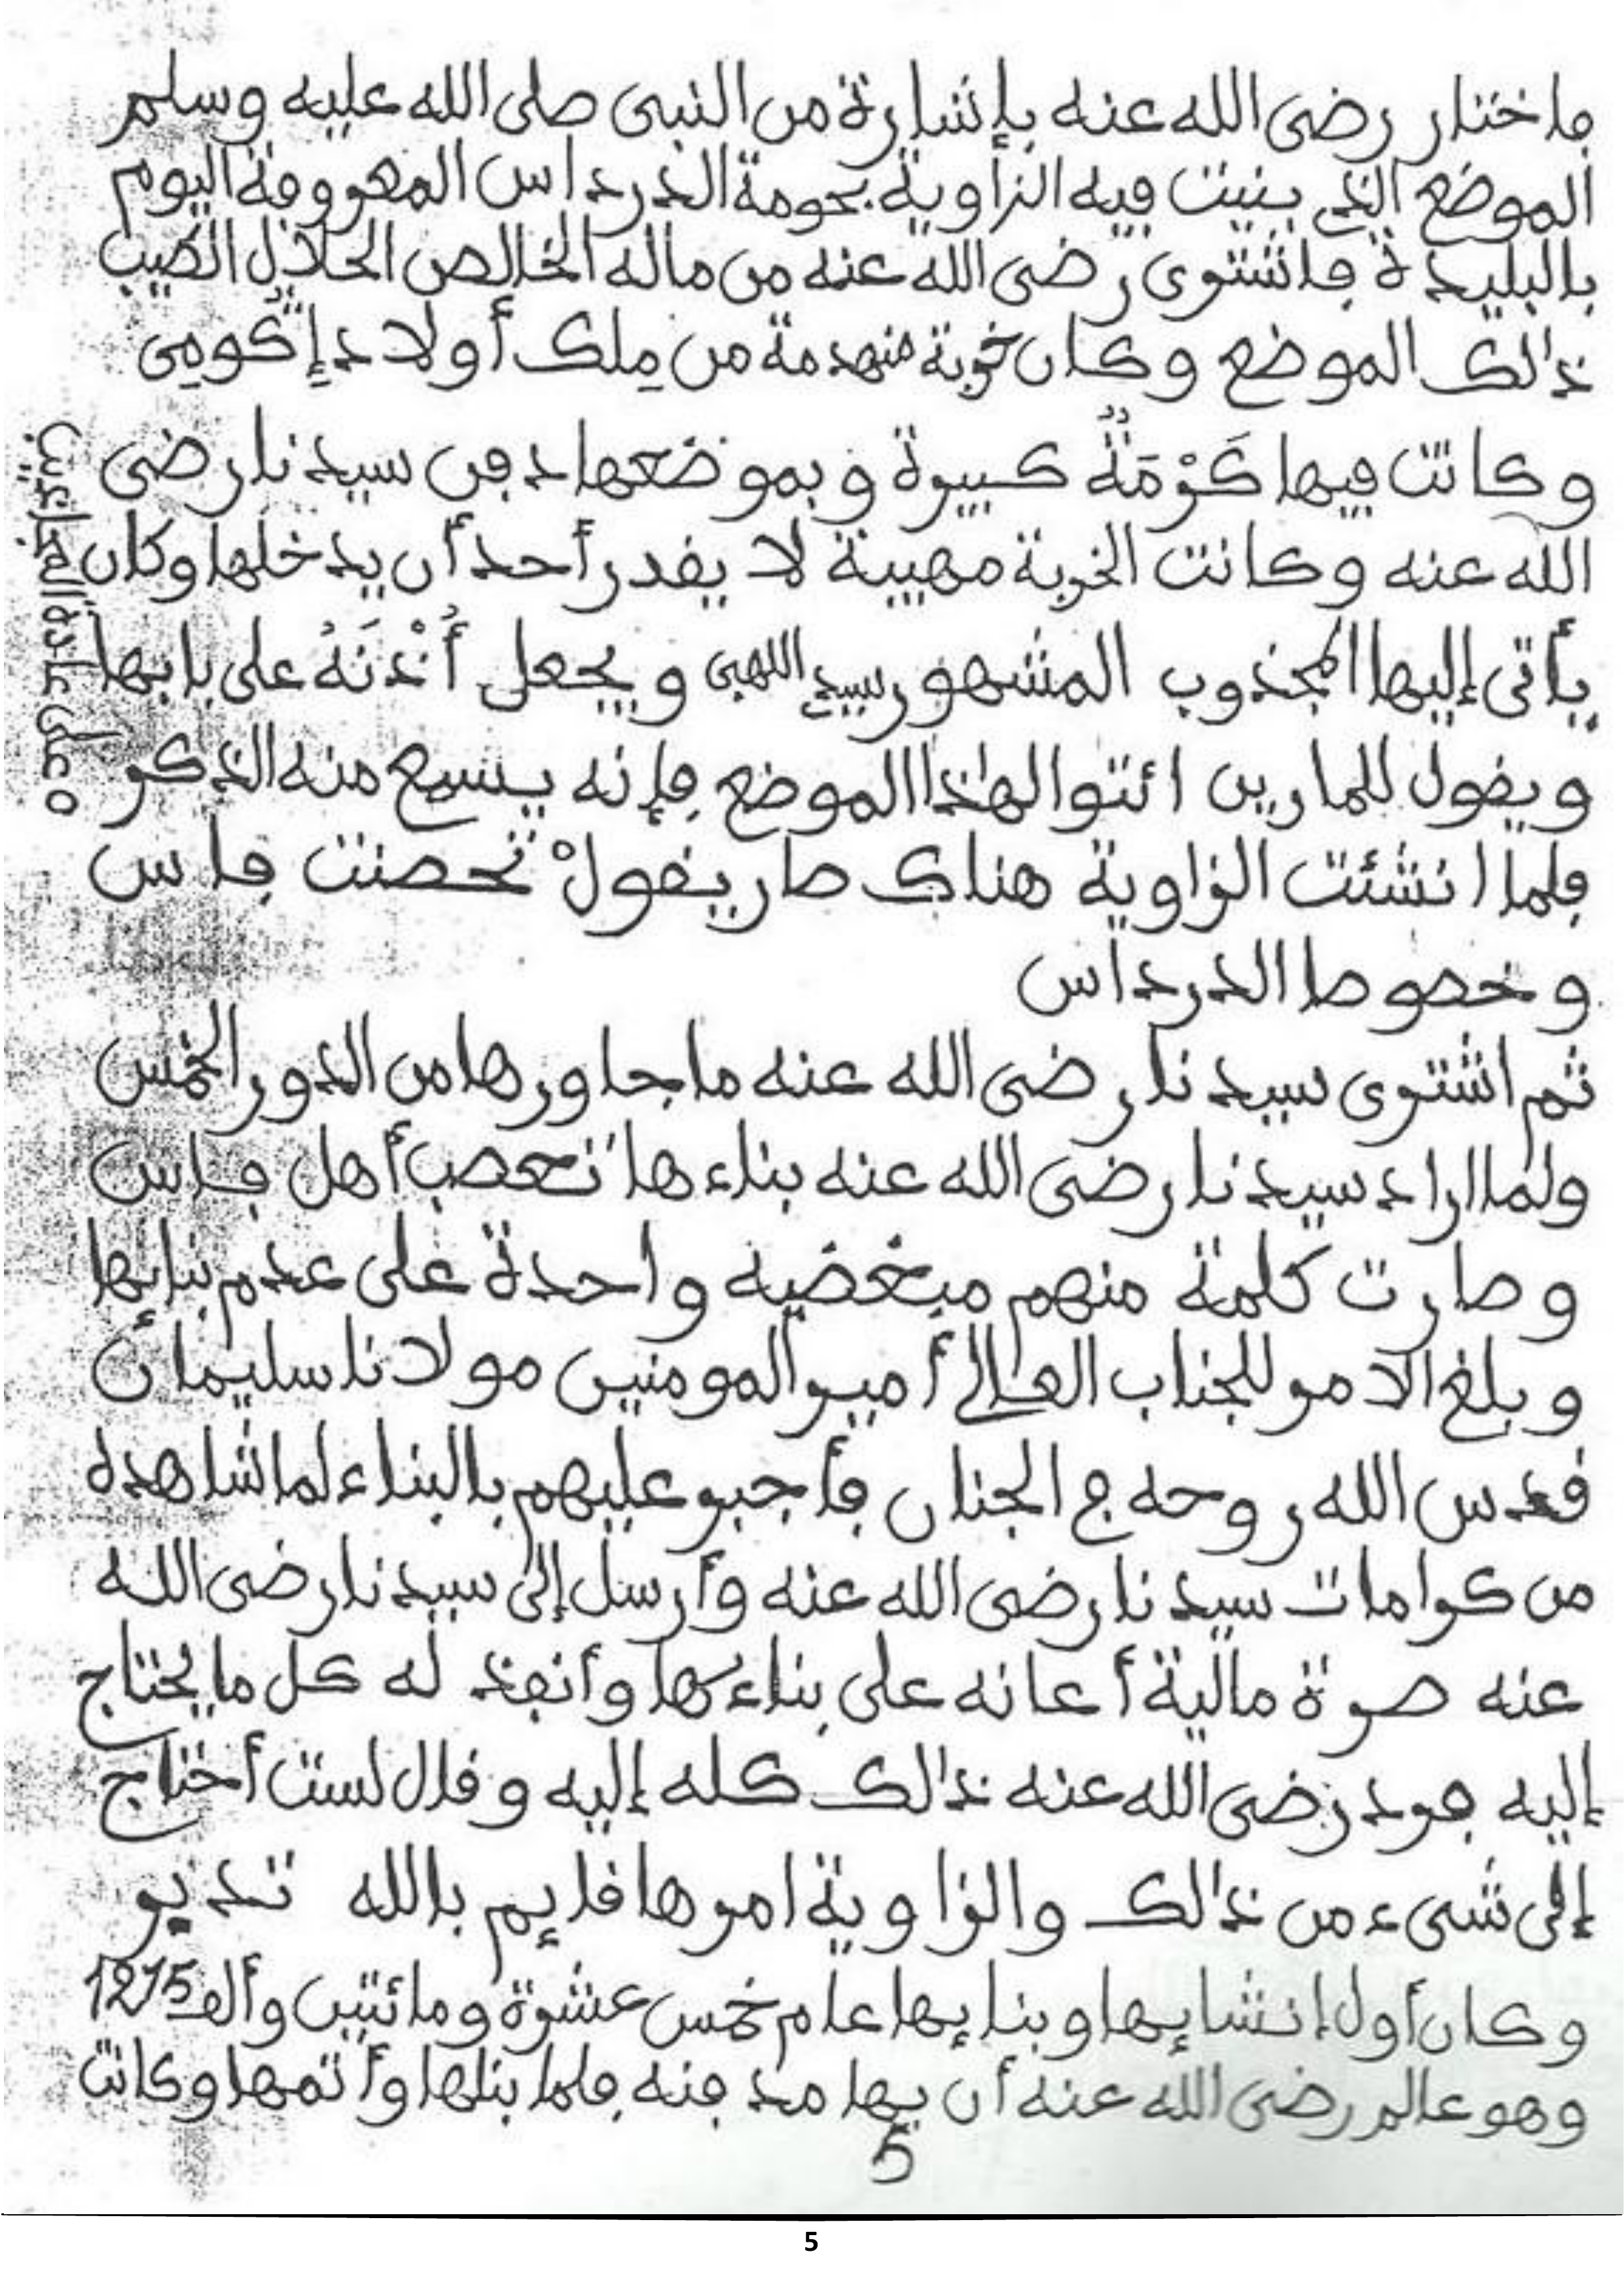 فاختار رضى الله عنه بإشارة من النبى صلى الله عليه وسلم
الموضع الذي بنيت فيه الزاوية بحومة الدرداس المعروفة اليوم
بالبليدة فاشترى رضى الله عنه من ماله الخالص الحلال الطيب
ذالك الموضع وكان خربة منهدمة من مِلك أولاد إڭومِى
وكانت فيها كَرْمَةٌ كبيرة وبموضعها دفن سيدنا رضى
الله عنه وكانت الخربة مهيبة لا يقدر أحد أن يدخلها وكان
يأتى إليها المجذوب المشهور بسيدي اللهبى ويجعل أُذْنَهُ على بابها
ويقول للمارين ائتوا لهٰذا الموضع فإنه يسمع منه الذكر
فلما انشئت الزاوية هناك صار يقولْ تحصنت فاس
وخصوصا الدرداس
ثم اشترى سيدنا رضى الله عنه ما جاورها من الدور الخمس
ولما اراد سيدنا رضى الله عنه بناءها تعصب أهل فاس
وصارت كلمة منهم مبغضيه واحدة على عدم بنايها
وبلغ الامر للجناب العالي أمير المومنين مولانا سليمان
قدس الله روحه في الجنان فأجبر عليهم بالبناء لما شاهده
من كرامات سيدنا رضى الله عنه وأرسل إلى سيدنا رضى الله
عنه صرة مالية أعانه على بناءها وأنفذ له كل ما يحتاج
إليه فرد رضى الله عنه ذالك كله إليه وقال لست أحتاج
إلى شىء من ذالك والزاوية امرها قايم بالله تدبر
وكان أول إنشايها وبنايها عام خمس عشرة ومائتين وألف 1215
وهو عالم رضى الله عنه أن بها مدفنه فلما بناها وأتمها وكانت
5
على عادة المجاذيب ه
5